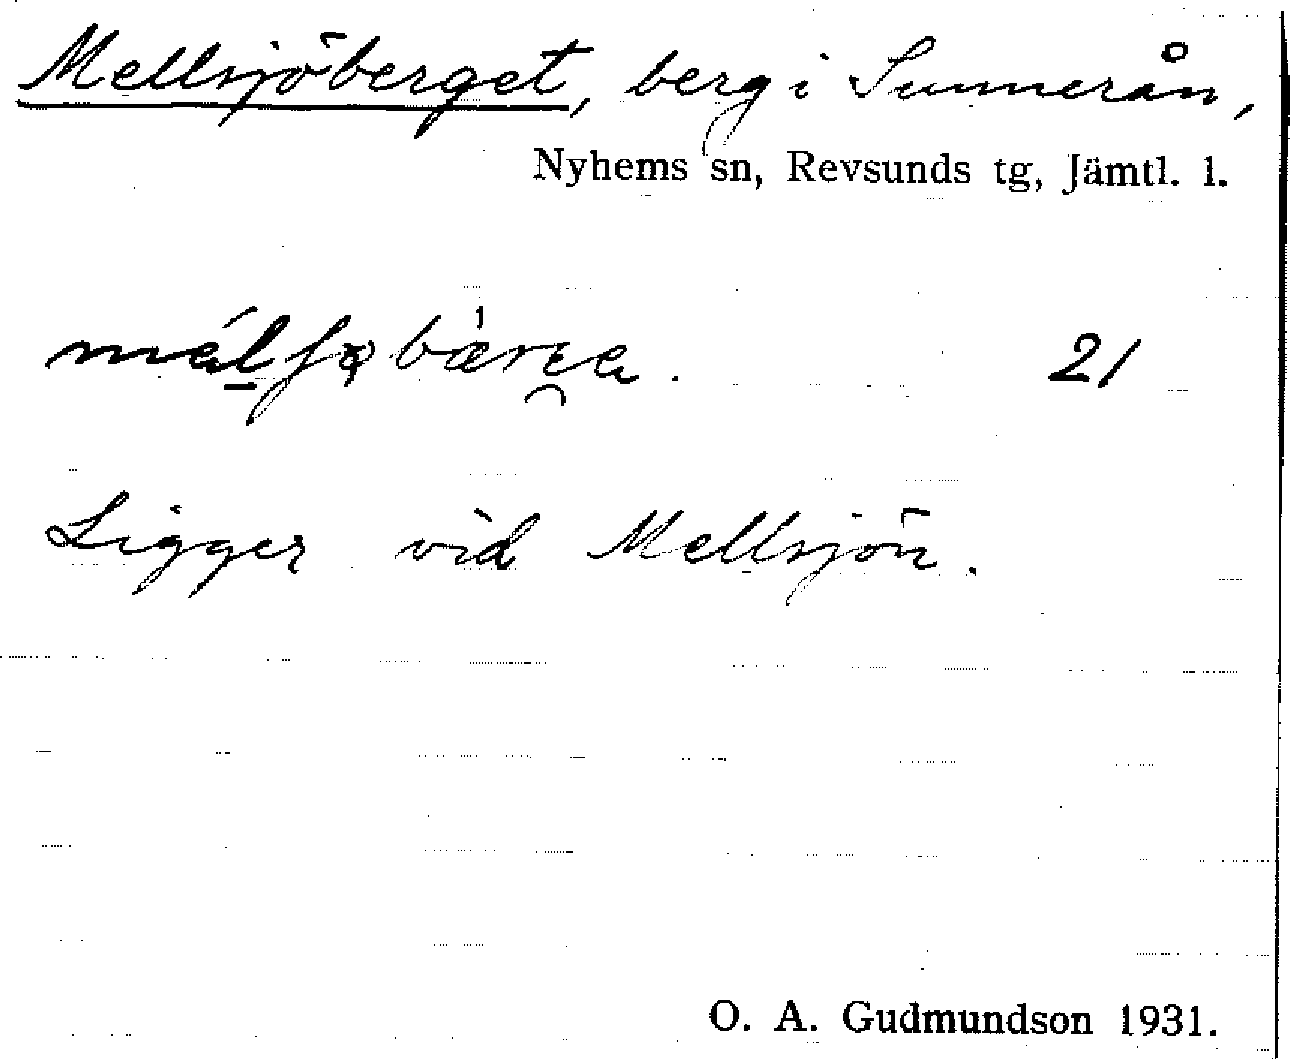 Mellsjöberget, berg i Sunnerån,
Nyhems sn, Revsunds tg, Jämtl. l.
21
Ligger vid Mellsjön.
O. A. Gudmundson 1931.